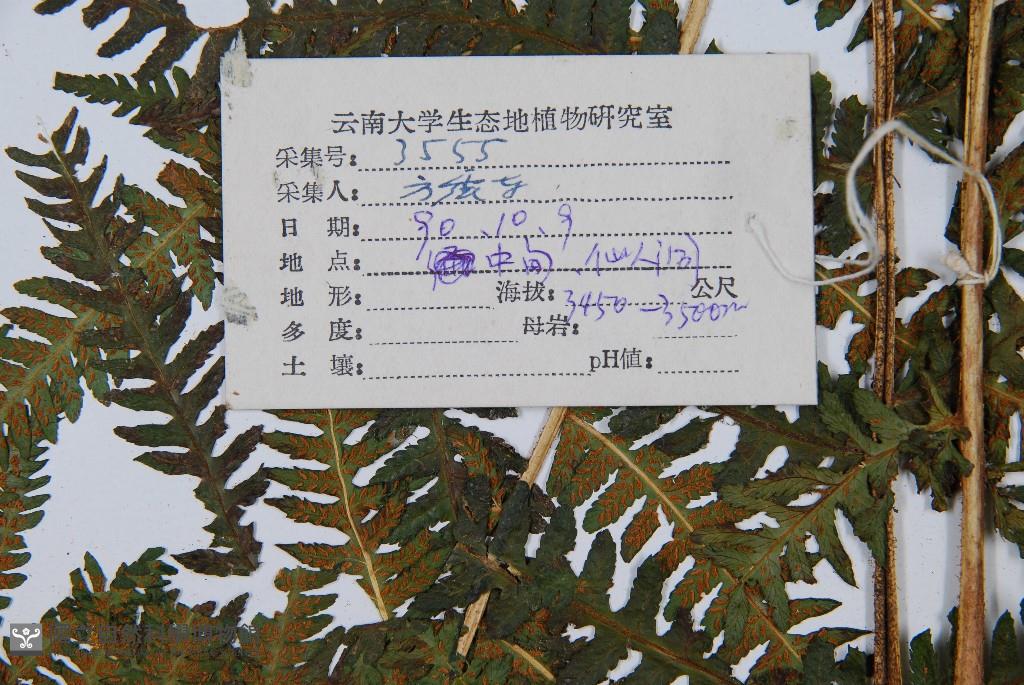 云南大学生态地植物研究室
采集号: 3555
采集人: 方
日 期: 90.10.9
地 点: 中甸、仙人洞
地 形: 海拔: 3450—3500m 公尺
多 度: 母岩:
土 壤: pH值: